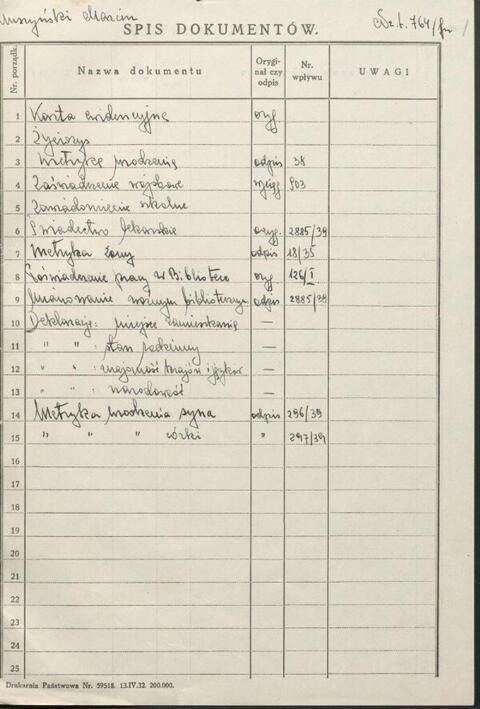 Muszyński Marcin
Dz. t. 764/fu
SPIS DOKUMENTÓW.
Nr. porządk. Nazwa dokumentu Orygi- nał czy odpis Nr. wpływu UWAGI
1 Karta ewidencyjna oryg.
2 Życiorys
3 Metryka urodzenia odpis 38
4 Zaświadczenie wojskowe wyciąg 903
5 Zawiadomienie szkolne
6 Świadectwo lekarskie oryg. 2885/39
7 Metryka żony odpis 18/35
8 Poświadczenie pracy w Bibliotece oryg 126/I
9 Mianowanie woźnym bibliotecznym odpis 2885/38
10 Deklaracje: miejsce zamieszkania —
11 " " : stan rodzinny —
12 " " : znajomość krajów i języków —
13 " " : narodowość —
14 Metryka urodzenia syna odpis 296/39
15 " " " córki " 297/39
16
17
18
19
20
21
22
23
24
25
Drukarnia Państwowa Nr. 59518. 13.IV.32. 200.000.